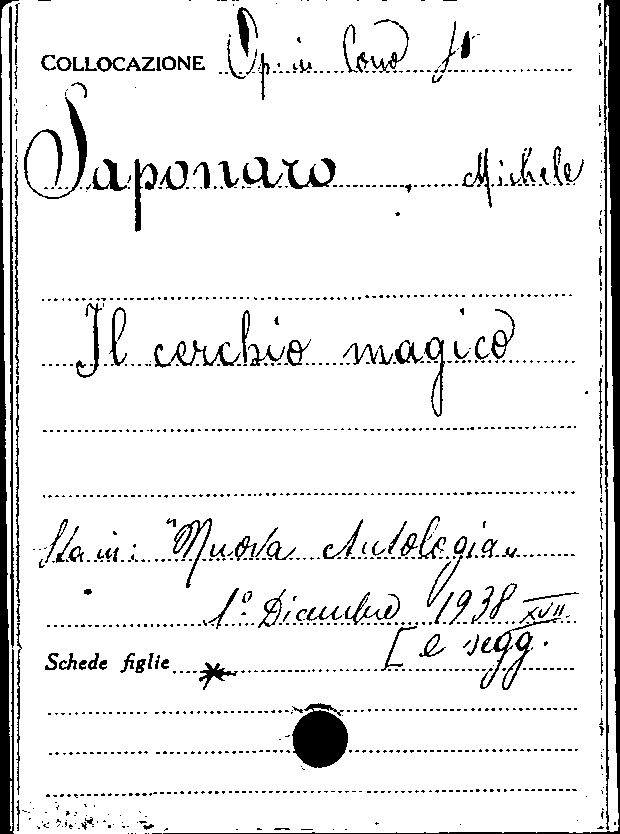 COLLOCAZIONE Op. in Cons
Saponaro, Michele
Il cerchio magico
Sta in: "Nuova Antologia"
1° Dicembre 1938 XVII
[e segg.
Schede figlie *